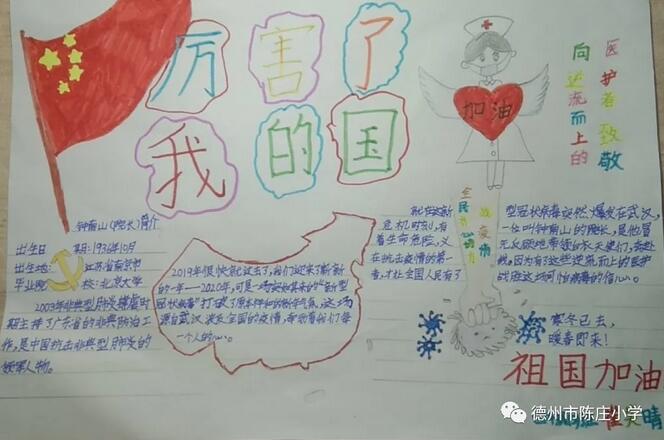 厉害了
我的国
加油
向逆流而上的
医护者致敬
钟南山(院长)简介
出生日期:1936年10月
出生地:江苏省南京市
毕业院校:北京大学
2003年非典型肺炎
主持了广东省的非典防治工
作,是中国抗击非典型肺炎的
领军人物。
2019年很快就过去了,我们迎来了新的
的一年——2020年,可是一场突如其来的“新型
冠状病毒”打破了原本祥和的新年气氛,这场
源自武汉
全国的疫情,牵动着我们每
一个人的心。
全民齐心协力
战疫情
就在这新
危机时刻,有
着生命危险,义
在抗击疫情的第一
者,才让全国人民有了
型冠状病毒突然爆发在武汉,
一位叫钟南山的院长,是他冒
无反顾地带领
因为有了这些逆流而上的医护
战胜这场可怕病毒的信心。
寒冬已去,
暖春即来!
祖国加油
德州市陈庄小学